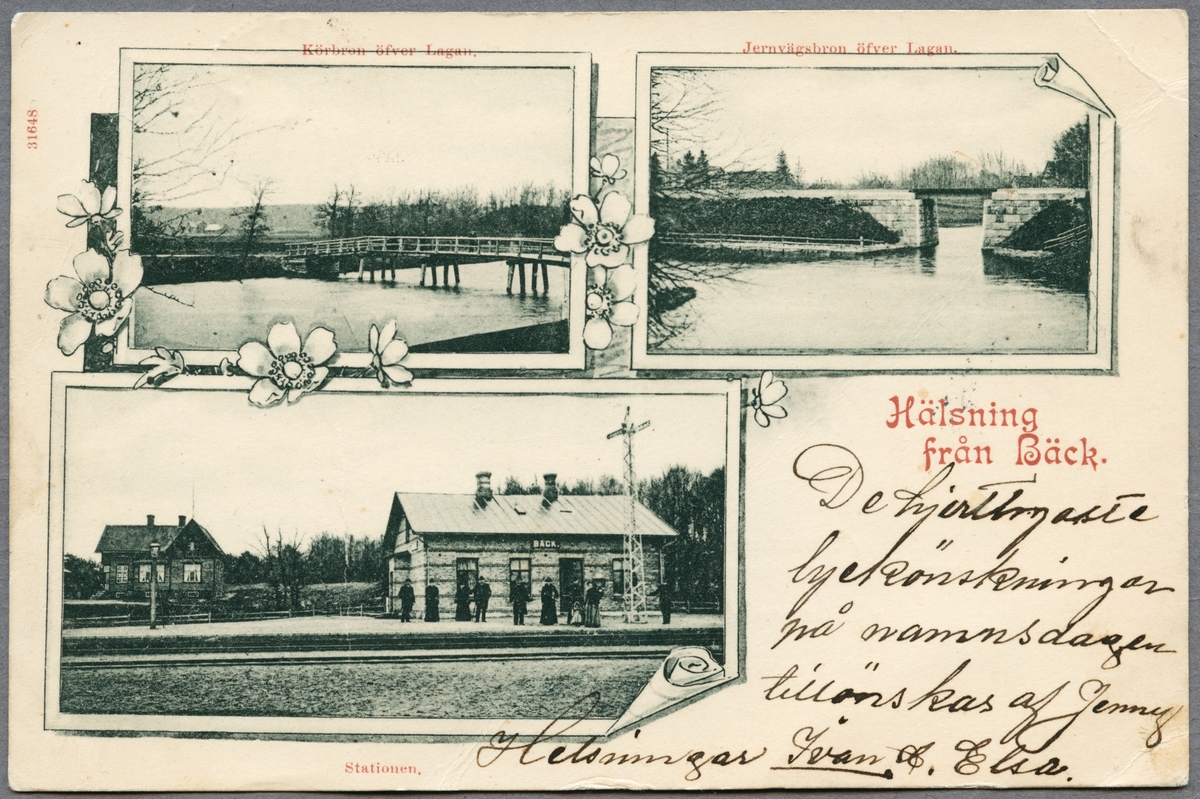 Körbron öfver Lagan.
Jernvägsbron öfver Lagan.
31648
Hälsning
från Bäck.
BÄCK.
De hjertligaste
lyckönskningar
på namnsdagen
tillönskas af Jenny
Helsningar Ivan &. Elsa.
Stationen.